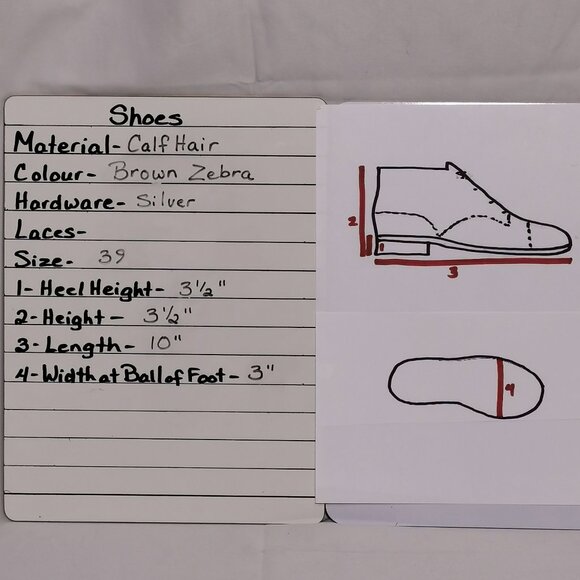 Shoes
Material- Calf Hair
Colour- Brown Zebra
Hardware- Silver
Laces-
Size- 39
1- Heel Height- 3 1/2"
2- Height- 3 1/2"
3- Length- 10"
4- Width at Ball of Foot- 3"
2
1
3
4